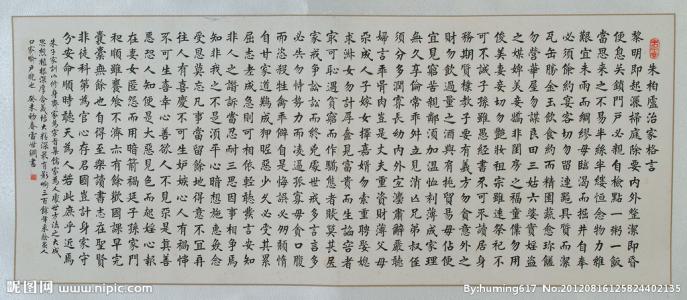 朱柏廬治家格言
黎明即起灑掃庭除要內外整潔即昏
便息關鎖門户必親自檢點一粥一飯
當思來之不易半絲半縷恒念物力維
艱宜未雨而綢繆毋臨渴而掘井自奉
必須儉約宴客切勿留連器具質而潔
瓦缶勝金玉飲食約而精園蔬愈珍饈
勿營華屋勿謀良田三姑六婆實淫盜
之媒婢美妾嬌非閨房之福童僕勿用
俊美妻妾切忌艷妝祖宗雖遠祭祀不
可不誠子孫雖愚經書不可不讀居身
務期質樸教子要有義方勿貪意外之
財勿飲過量之酒與肩挑貿易毋佔便
宜見窮苦親鄰須加溫恤刻薄成家理
無久享倫常乖舛立見消亡兄弟叔侄
須分多潤寡長幼內外宜肅辭嚴聽
婦言乖骨肉豈是丈夫重資財薄父母
不成人子嫁女擇佳婿勿索重聘娶媳
求淑女勿計厚奩見富貴而生諂容者
最可恥遇貧窮而作驕態者賤莫甚居
家戒爭訟訟則終凶處世戒多言言多
必失勿恃勢力而凌逼孤寡毋貪口腹
而恣殺牲禽乖僻自是悔誤必多頹惰
自甘家道難成狎昵惡少久必受其累
屈志老成急則可相依輕聽發言安知
非人之譖訴當忍耐三思因事相爭焉
知非我之不是須平心暗想施惠無念
受恩莫忘凡事當留餘地得意不宜再
往人有喜慶不可生妒嫉心人有禍患
不可生喜幸心善欲人見不是真善
惡恐人知便是大惡見色而起淫心報
在妻女匿怨而用暗箭禍延子孫家門
和順雖饔飧不濟亦有餘歡國課早完
囊橐無餘自得至樂讀書志在聖賢
非徒科第為官心存君國豈計身家守
分安命順時聽天為人若此庶乎近焉
昵图网 www.nipic.com
By:huming617 No.20120816125824402135